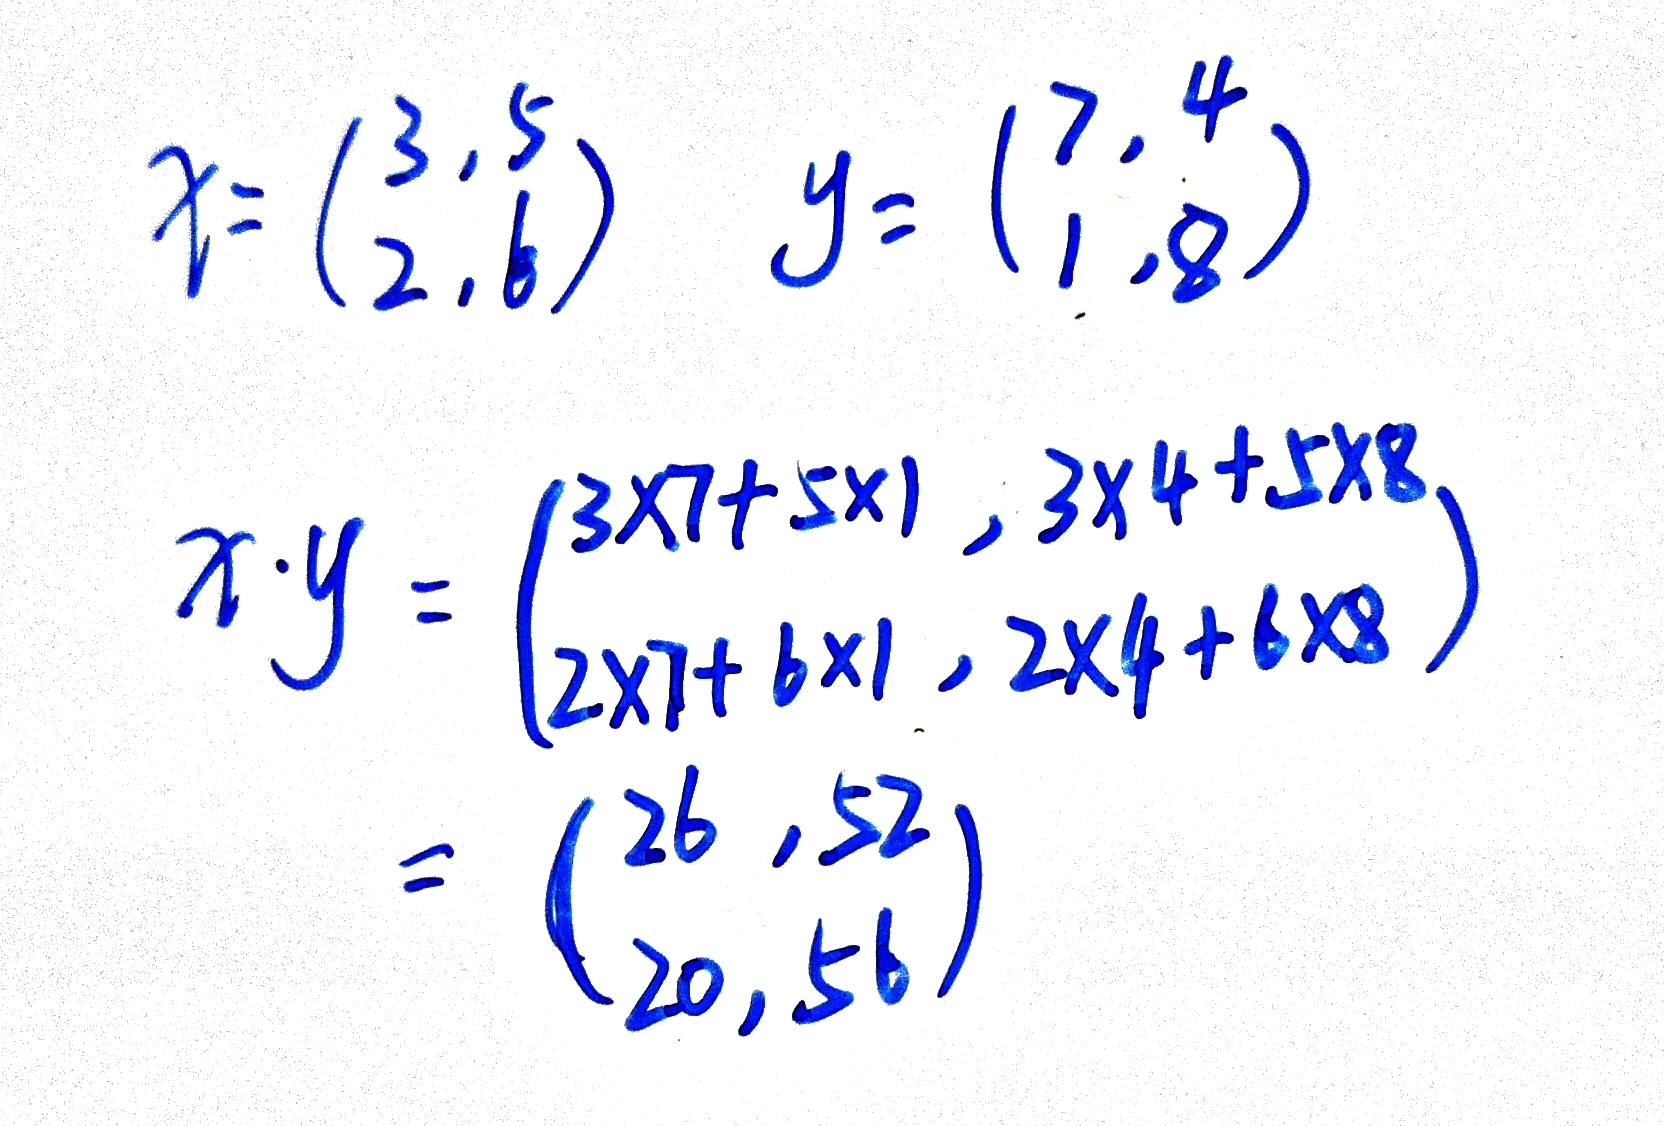 x = (3, 5   y = (7, 4
2, 6)   1, 8)
x·y = (3×7+5×1, 3×4+5×8
2×7+6×1, 2×4+6×8)
= (26, 52
20, 56)